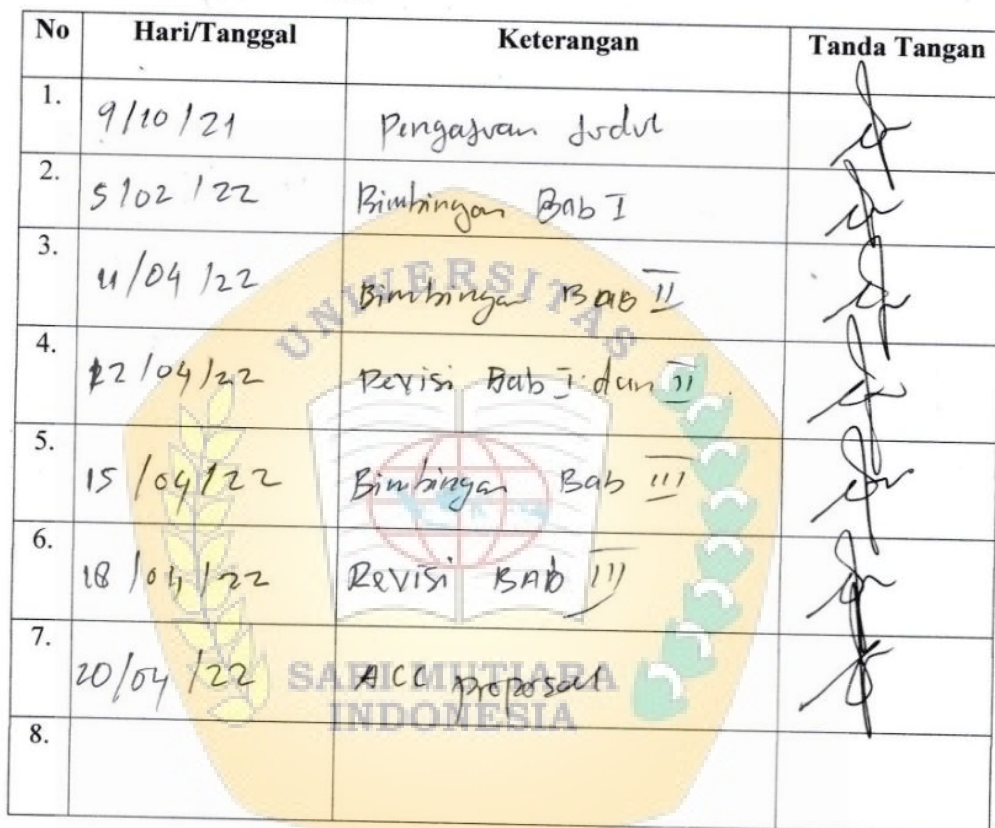 No Hari/Tanggal Keterangan Tanda Tangan
1. 9/10/21 Pengajuan Judul
2. 5/02/22 Bimbingan Bab I
3. 11/04/22 Bimbingan BAB II
4. 12/04/22 Revisi Bab I dan II
5. 15/04/22 Bimbingan Bab III
6. 18/04/22 Revisi BAB III
7. 20/04/22 ACC proposal
8.
UNIVERSITAS
SARI MUTIARA
INDONESIA